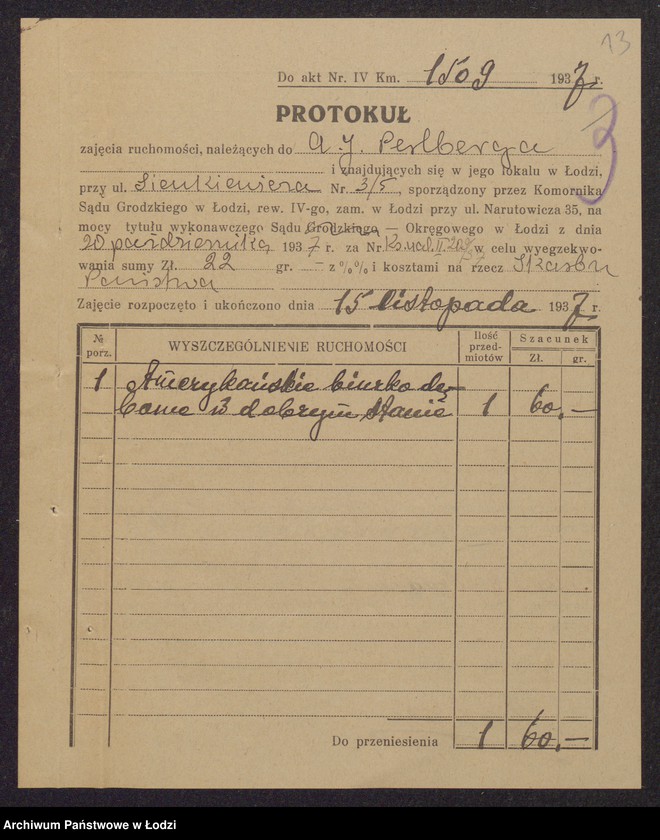 13
Do akt Nr. IV Km. 1509 1937 r.
PROTOKUŁ
zajęcia ruchomości, należących do A. J. Perlberga
i znajdujących się w jego lokalu w Łodzi,
przy ul. Sienkiewicza Nr. 3/5, sporządzony przez Komornika
Sądu Grodzkiego w Łodzi, rew. IV-go, zam. w Łodzi przy ul. Narutowicza 35, na
mocy tytułu wykonawczego Sądu Grodzkiego — Okręgowego w Łodzi z dnia
20 października 1937 r. za Nr. w celu wyegzekwo-
wania sumy Zł. 22 gr. — z %% i kosztami na rzecz Skarbu
Państwa
Zajęcie rozpoczęto i ukończono dnia 15 listopada 1937 r.
№ porz. WYSZCZEGÓLNIENIE RUCHOMOŚCI Ilość przed-miotów Szacunek Zł. gr.
1 Amerykańskie biurko dę-
bowe w dobrym stanie 1 60.—
Do przeniesienia 1 60.—
Archiwum Państwowe w Łodzi